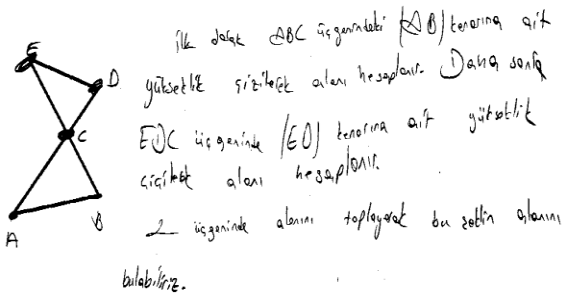 E
D
C
B
A
ilk olarak ABC üçgenindeki |AB| kenarına ait
yükseklik çizilerek alanı hesaplanır. Daha sonra
EDC üçgeninde |ED| kenarına ait yükseklik
çizilerek alanı hesaplanır.
2 üçgeninde alanını toplayarak bu şeklin alanını
bulabiliriz.